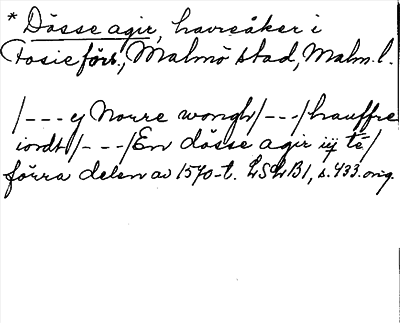 * Dösse agir, havreåker i
Fosie förs., Malmö stad, Malm.l.
/---y Norre wongh/---/hauffre
iordt/---/En dösse agir iij té/
förra delen av 1570-t. LSLB1, s.433.orig.